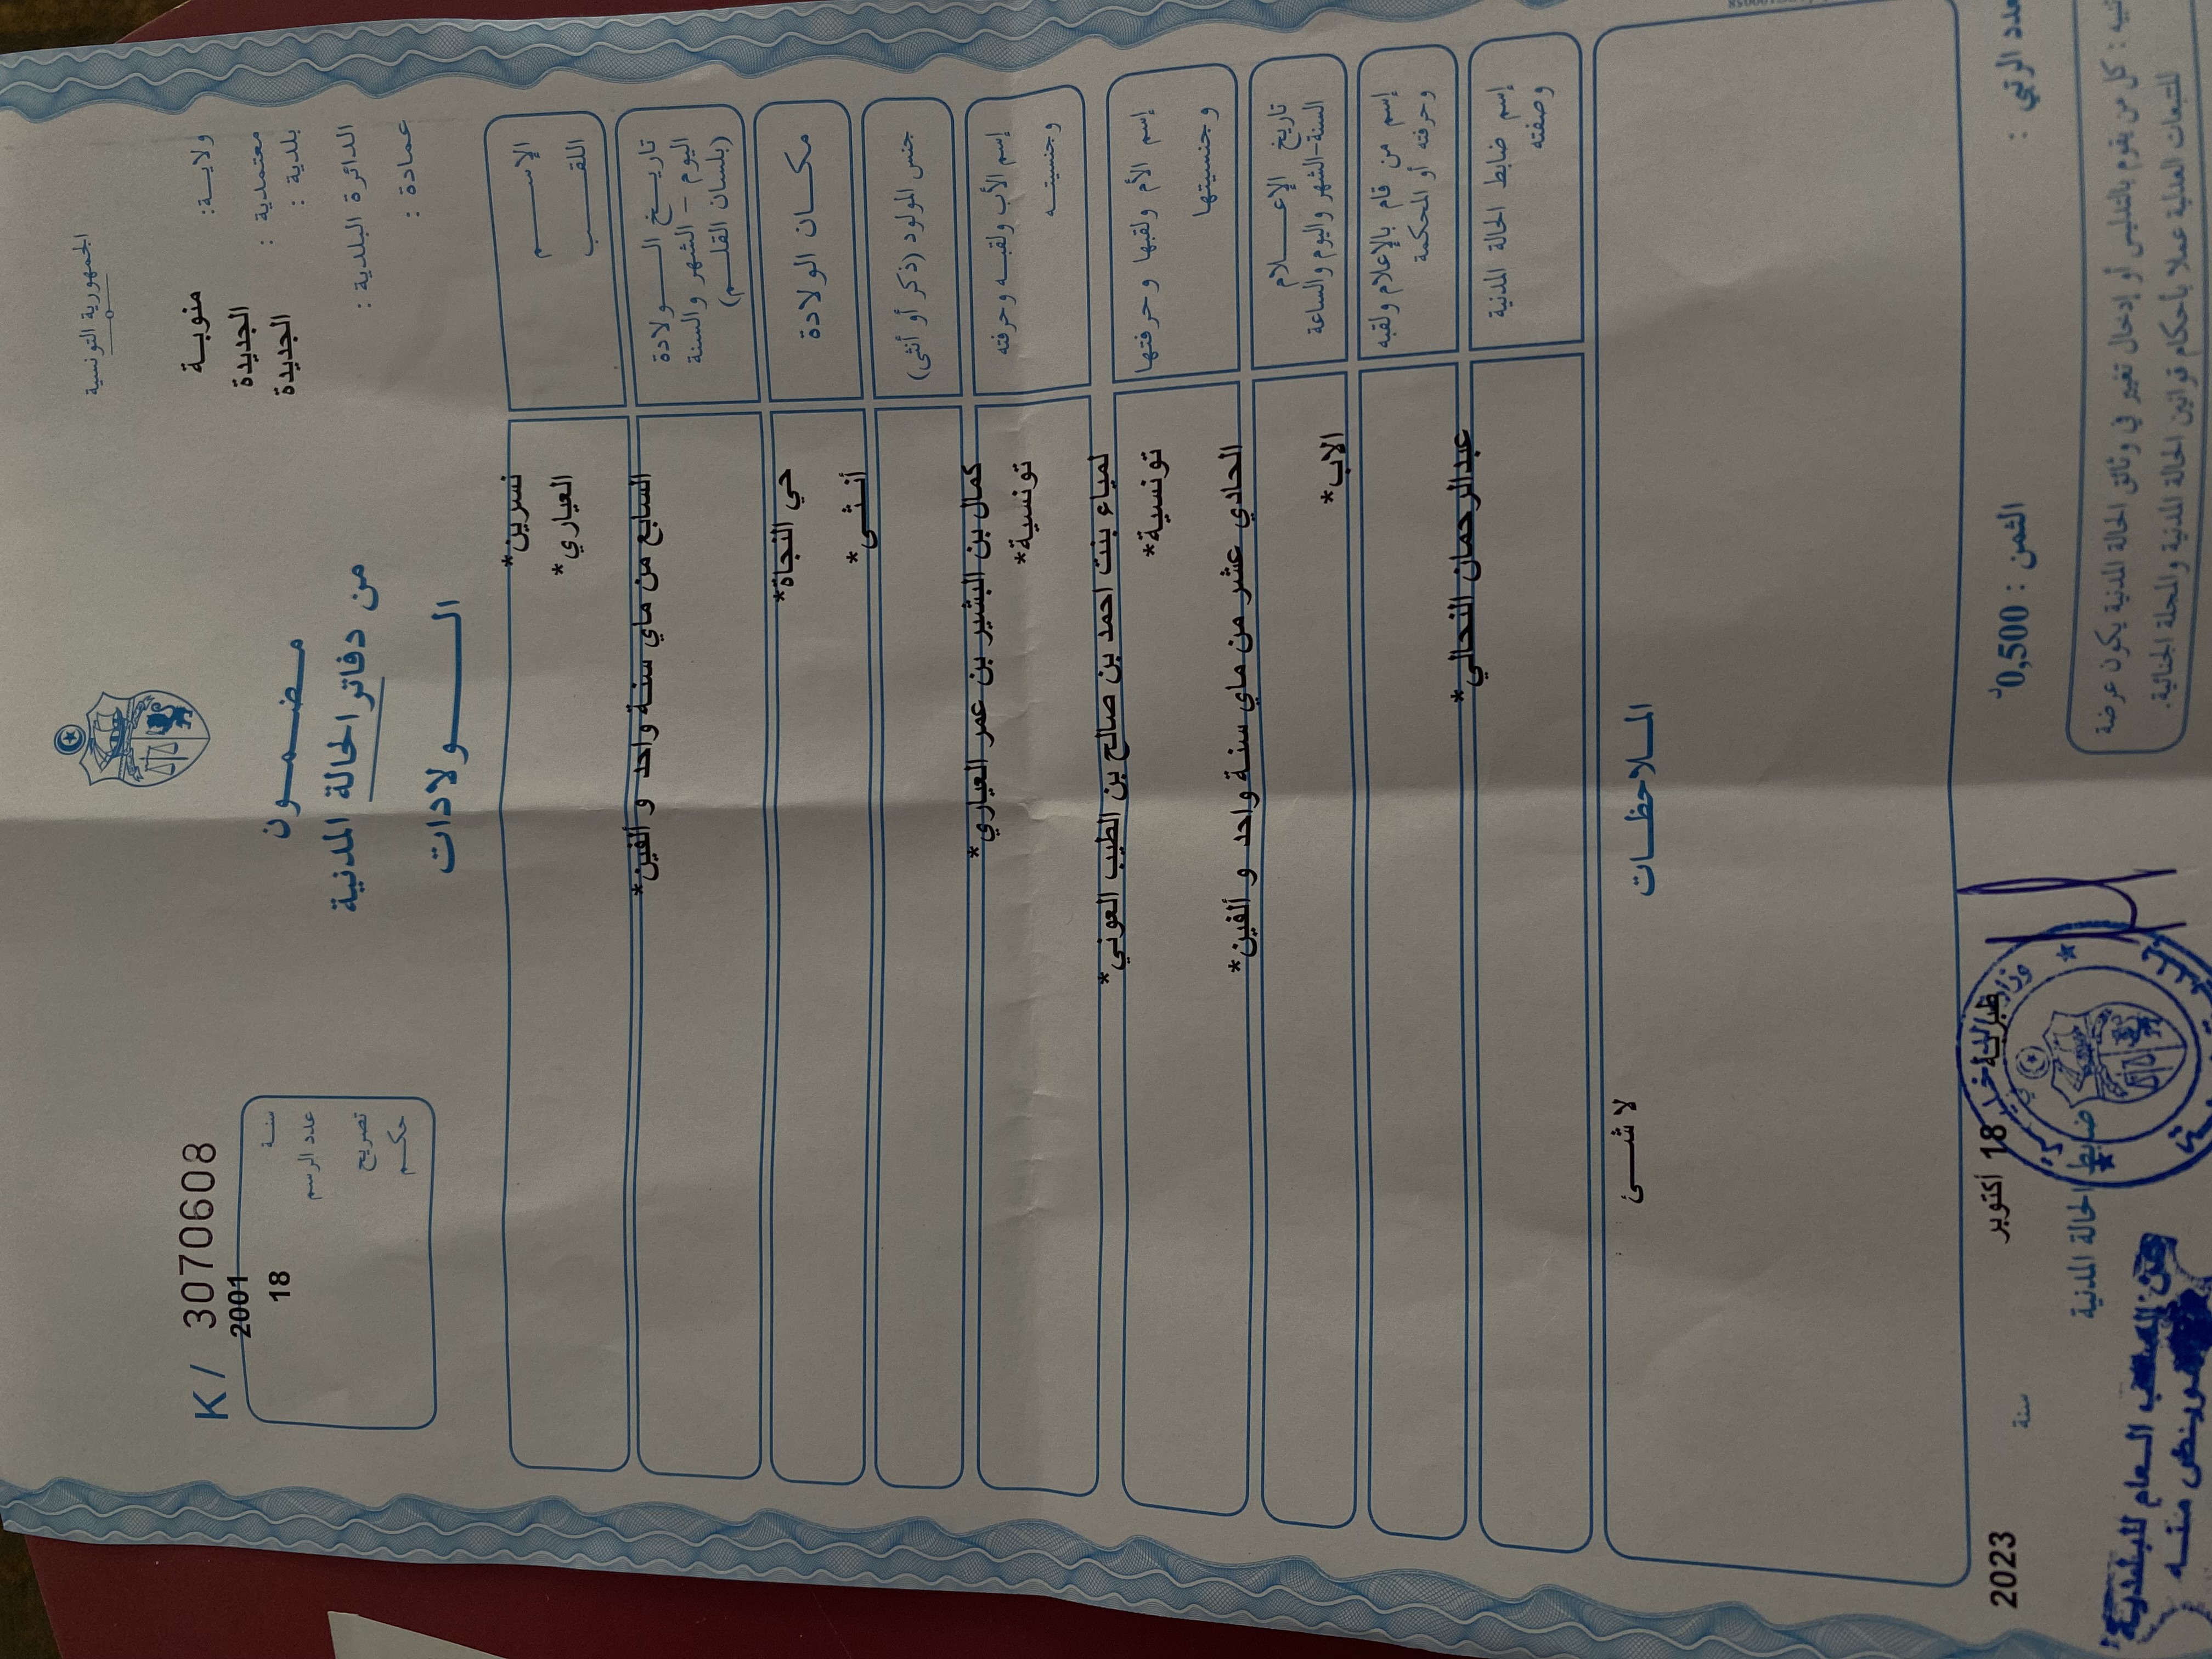 الجمهورية التونسية
ولاية: منوبة
معتمدية : الجديدة
بلدية : الجديدة
الدائرة البلدية :
عمادة :
K / 3070608
سنة 2001
عدد الرسم 18
تصريح
حكم
مضمون
من دفاتر الحالة المدنية
الولادات
الإسم نسرين*
اللقب العياري*
تاريخ الولادة
اليوم - الشهر والسنة
(بلسان القلم)
السابع من ماي سنة واحد و ألفين*
مكان الولادة حي النجاة*
جنس المولود (ذكر أو أنثى) أنثى*
إسم الأب ولقبه وحرفته كمال بن البشير بن عمر العياري*
وجنسيته تونسية*
إسم الأم ولقبها وحرفتها لمياء بنت احمد بن صالح بن الطيب العوني*
وجنسيتها تونسية*
تاريخ الإعلام
السنة-الشهر واليوم والساعة
الحادي عشر من ماي سنة واحد و ألفين*
إسم من قام بالإعلام ولقبه
وحرفته أو المحكمة
الاب*
إسم ضابط الحالة المدنية
وصفته
عبدالرحمان النحالي*
الملاحظات
لا شئ
18 أكتوبر سنة 2023
ضابط الحالة المدنية
العدد الرتبي :
الثمن : 0,500د
تنبيه : كل من يقوم بالتدليس أو إدخال تغيير في وثائق الحالة المدنية يكون عرضة
للتتبعات العدلية عملا بأحكام قوانين الحالة المدنية والمجلة الجنائية.